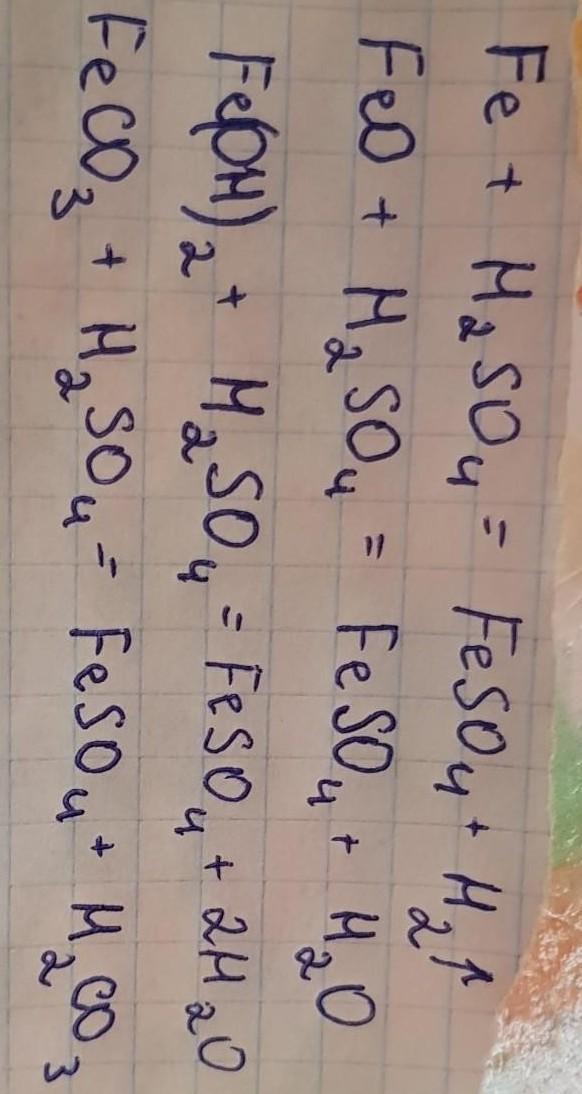 Fe + H₂SO₄ = FeSO₄ + H₂↑
FeO + H₂SO₄ = FeSO₄ + H₂O
Fe(OH)₂ + H₂SO₄ = FeSO₄ + 2H₂O
FeCO₃ + H₂SO₄ = FeSO₄ + H₂CO₃